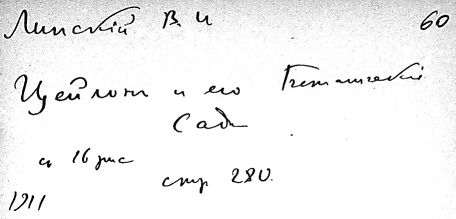 Липский В. И 60
Цейлон и его Ботанический
Сад
с 16 рис
стр 280.
1911